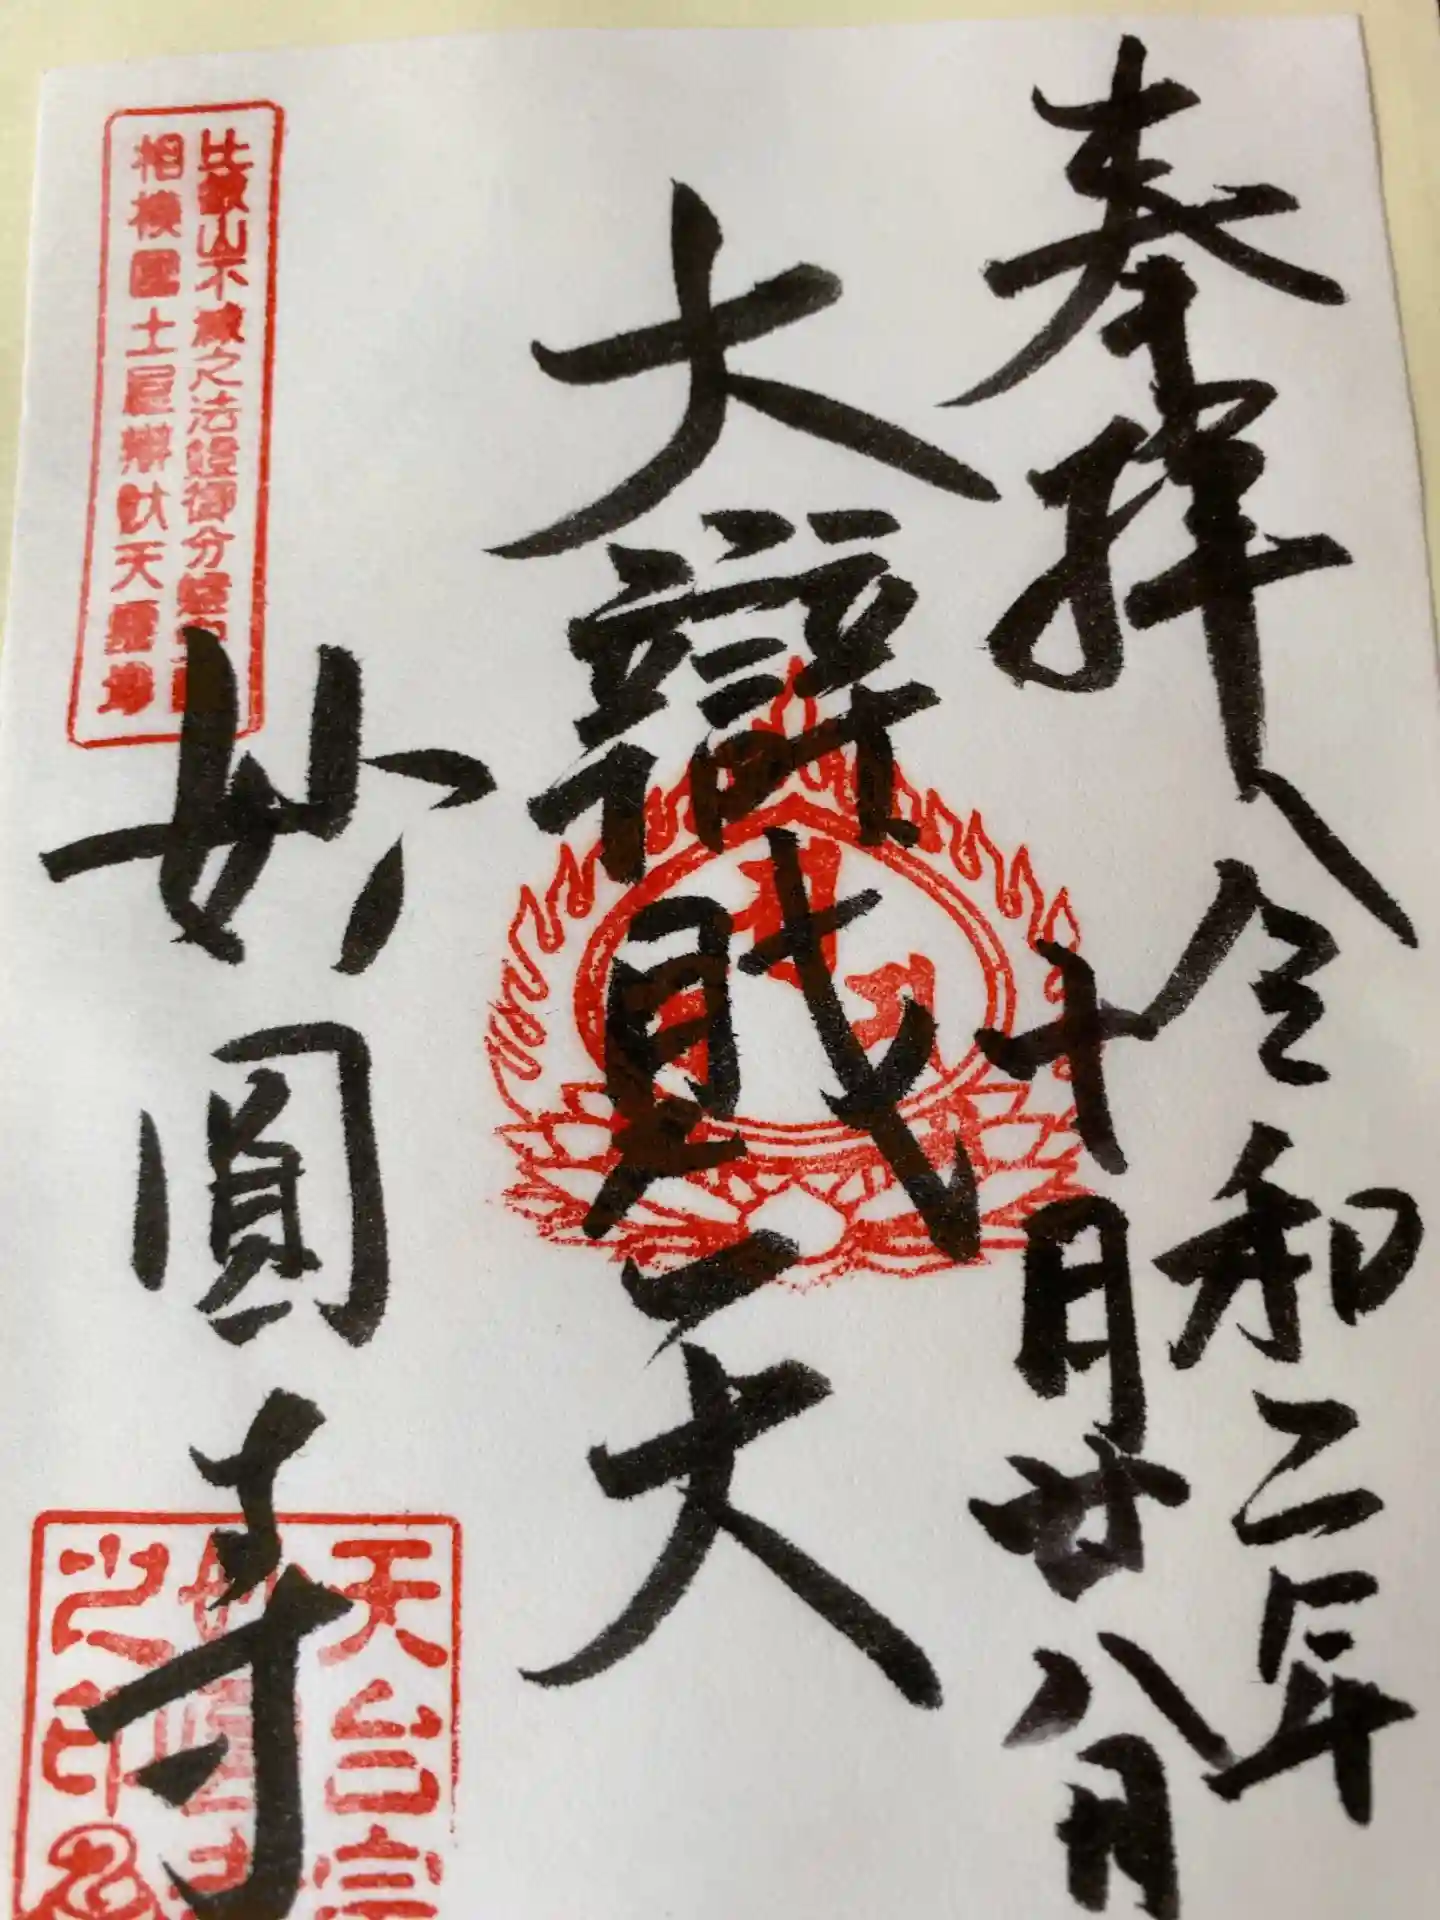 奉拝
令和二年
十月廿八日
大辯財天
妙圓寺
比叡山不滅之法燈御分燈
相模國土屋辯財天靈場
天台宗
之印